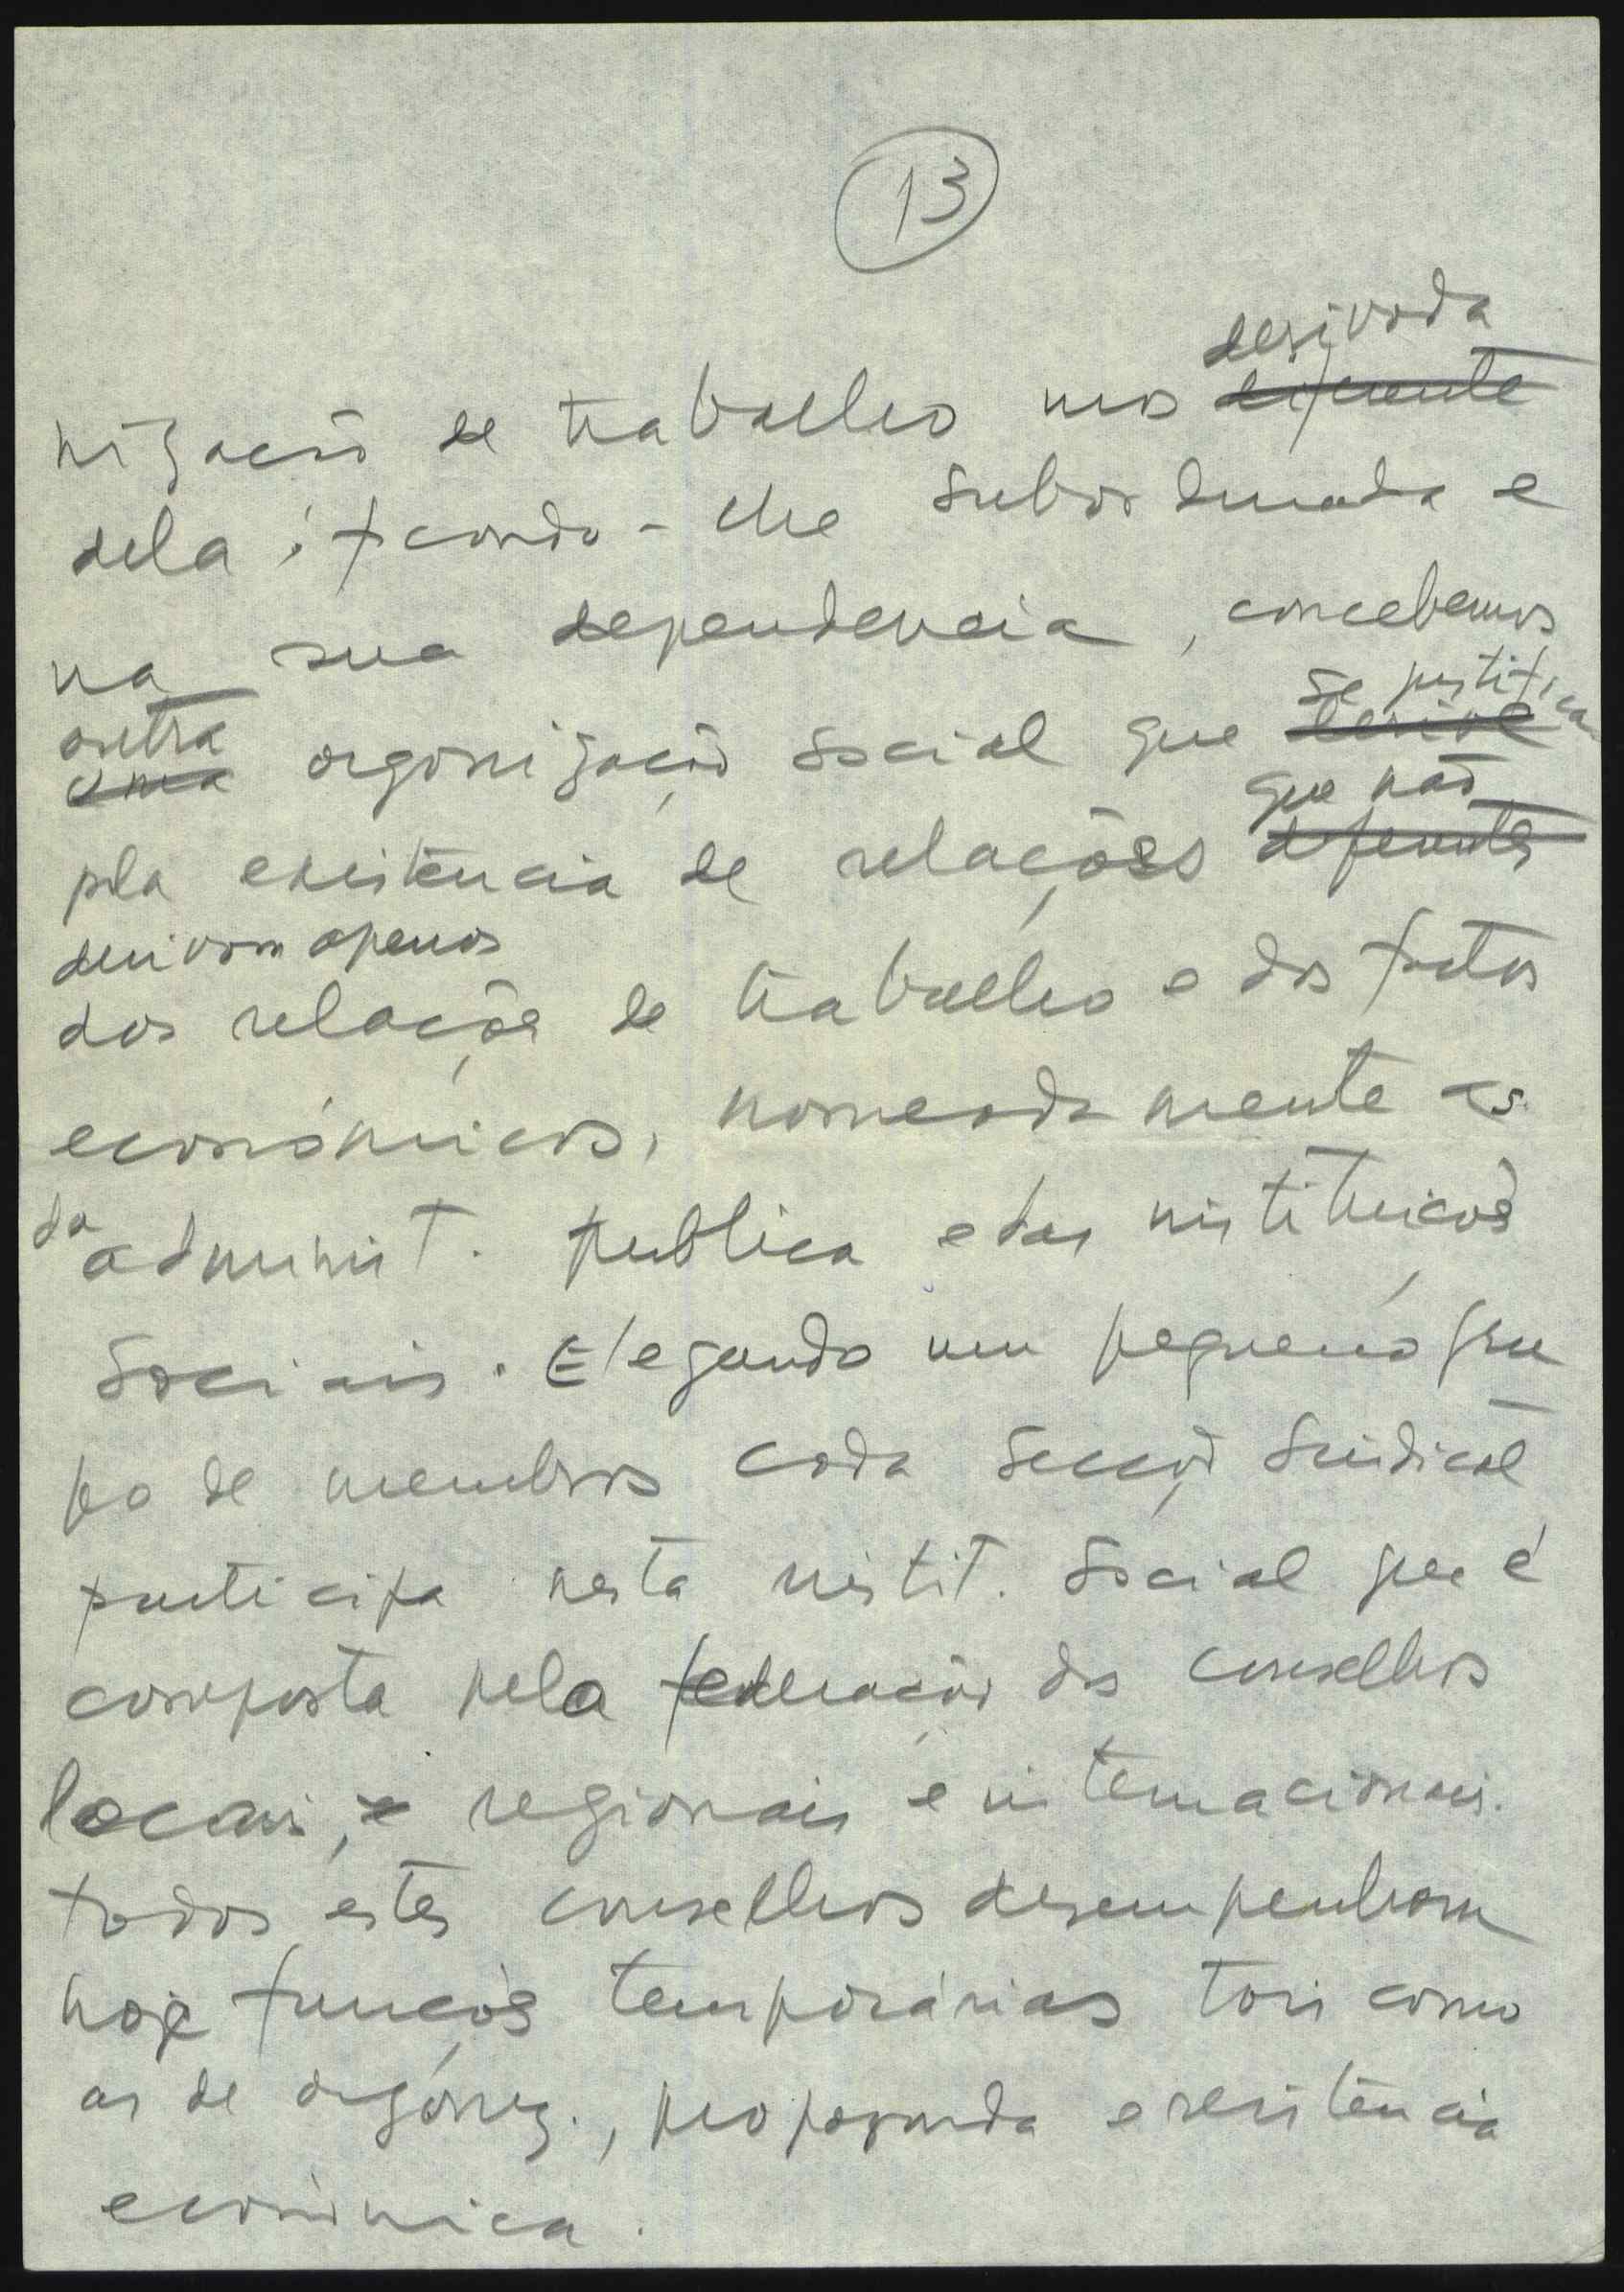 13
derivada
nização de trabalho mas diferente
dela, ficando-lhe subordinada e
na sua dependencia, concebemos
outra se justifica
uma organização social que derive
que não
pla existência de relações diferentes
derivam apenas
das relações de trabalho e dos factos
económicos, nomeadamente as
da administ. publica e das instituições
sociais. Elegendo um pequeno gru
po de membros cada secção sindical
participa nesta instit. social que é
composta pela federação dos conselhos
locais, e regionais e internacionais.
todos estes conselhos desempenham
hoje funções temporárias tais como
as de organiz., propaganda e resistência
económica.